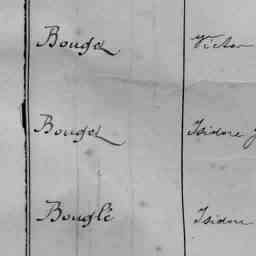 Bougd Victor
Bougd Isidore J
Bouglé Isidore